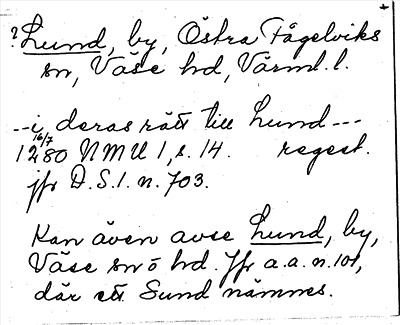 ? Lund, by, Östra Fågelviks
sn, Väse hd, Värml. l.
--i deras rätt till Lund---
16/7
1280 NMU 1, s. 14. regest.
jfr D.S. 1. n. 703.
Kan även avse Lund, by,
Väse sn o hd. Jfr a.a. n. 101,
där ett Sund nämnes.